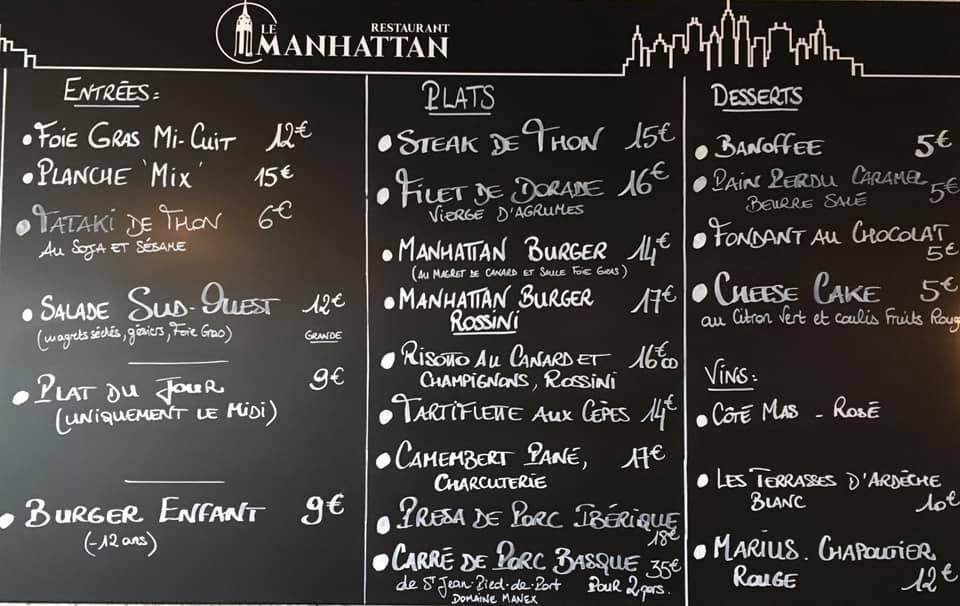 LE
RESTAURANT
MANHATTAN
ENTRÉES:
FOIE GRAS MI-CUIT 12€
PLANCHE 'MIX' 15€
TATAKI DE THON 6€
AU SOJA ET SÉSAME
SALADE SUD-OUEST 12€
(magrets séchés, gésiers, Foie Gras) GRANDE
PLAT DU JOUR 9€
(UNIQUEMENT LE MIDI)
BURGER ENFANT 9€
(-12 ans)
PLATS
STEAK DE THON 15€
FILET DE DORADE 16€
VIERGE D'AGRUMES
MANHATTAN BURGER 14€
(AU MAGRET DE CANARD ET SAUCE FOIE GRAS)
MANHATTAN BURGER 17€
ROSSINI
RISOTTO AU CANARD ET 16€00
CHAMPIGNONS, ROSSINI
TARTIFLETTE AUX CÈPES 14€
CAMEMBERT PANE, 17€
CHARCUTERIE
PRESA DE PORC IBÉRIQUE
18€
CARRÉ DE PORC BASQUE 35€
de St Jean-Pied-de-Port Pour 2 pers.
DOMAINE MANEX
DESSERTS
BANOFFEE 5€
PAIN PERDU CARAMEL
BEURRE SALÉ 5€
FONDANT AU CHOCOLAT
5€
CHEESE CAKE 5€
au Citron Vert et coulis Fruits Roug
VINS:
CÔTÉ MAS - ROSÉ
LES TERRASSES D'ARDÈCHE
BLANC 10€
MARIUS. CHAPOUTIER
ROUGE 12€